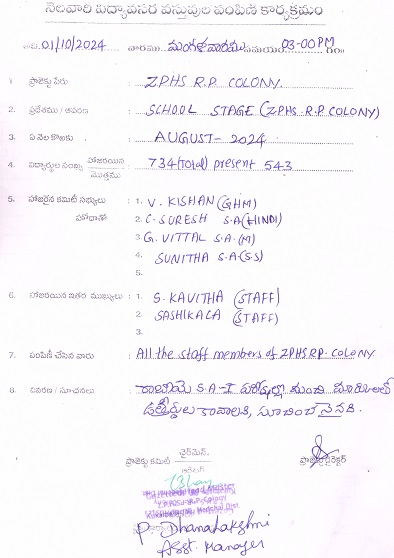 నెలవారి విద్యావసర వస్తువుల పంపిణీ కార్యక్రమం
తేది. 01/10/2024 వారము మంగళవారము సమయం 03-00PM గం॥
1 ప్రాజెక్టు పేరు : ZPHS R.P. COLONY.
2. ప్రదేశము / ఆవరణ : SCHOOL STAGE (ZPHS R.P. COLONY)
3. ఏ నెల కొఱకు : AUGUST- 2024
4. విద్యార్థుల సంఖ్య హాజరయిన / మొత్తము : 734(total) present 543
5. హాజరైన కమిటీ సభ్యులు : 1. V. KISHAN (GHM)
హోదాతో 2. C. SURESH S.A (HINDI)
3. G. VITTAL S.A. (M)
4. SUNITHA S.A (S.S)
5.
6. హాజరయిన ఇతర ముఖ్యులు : 1. S. KAVITHA (STAFF)
2. SASHIKALA (STAFF)
3.
7. పంపిణీ చేసిన వారు : All the staff members of ZPHS R.P. COLONY.
8. వివరణ / సూచనలు : రాబోయే S.A-I పరీక్షల్లో మంచి మార్కులతో
ఉత్తీర్ణులు కావాలని, సూచించనైనది.
ఛైర్మెన్,
ప్రాజెక్టు కమిటీ ప్రాజెక్టు డైరెక్టర్
P. Dhanalakshmi
Asst. Manager